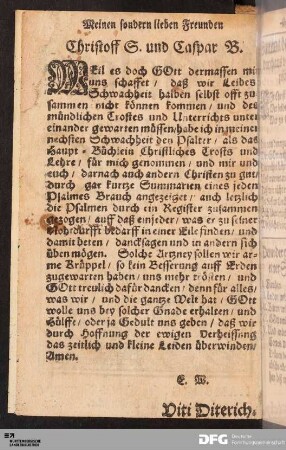 Meinen sondern lieben Freunden
Christoff S. und Caspar B.
WEil es doch GOtt dermassen mi
uns schaffet / daß wir Leibes
Schwachheit halben selbst offt zu
sammen nicht können kommen / und des
mündlichen Trostes und Unterrichts unter
einander gewarten müssen / habe ich in meiner
nechsten Schwachheit den Psalter / als das
Haupt-Büchlein Christliches Trosts und
Lehre / für mich genommen / und mir und
euch / darnach auch andern Christen zu gut /
durch gar kurtze Summarien eines jeden
Psalmes Brauch angezeiget / auch letzlich
die Psalmen durch ein Register zusammen
gezogen / auff daß ein jeder / was er zu seiner
Nohtdurfft bedarff in einer Eile finden / und
damit beten / dancksagen und in andern sich
üben mögen. Solche Artzney sollen wir ar-
me Krüppel / so kein Besserung auff Erden
zugewarten haben / uns mehr trösten / und
GOtt treulich dafür dancken / denn für alles /
was wir / und die gantze Welt hat / GOtt
wolle uns bey solcher Gnade erhalten / und
Hülffe / oder ja Gedult uns geben / daß wir
durch Hoffnung der ewigen Verheissung
das zeitlich und kleine Leiden überwinden /
Amen.
E. W.
Viti Diterich.
DFG
Deutsche
Forschungsgemeinschaft